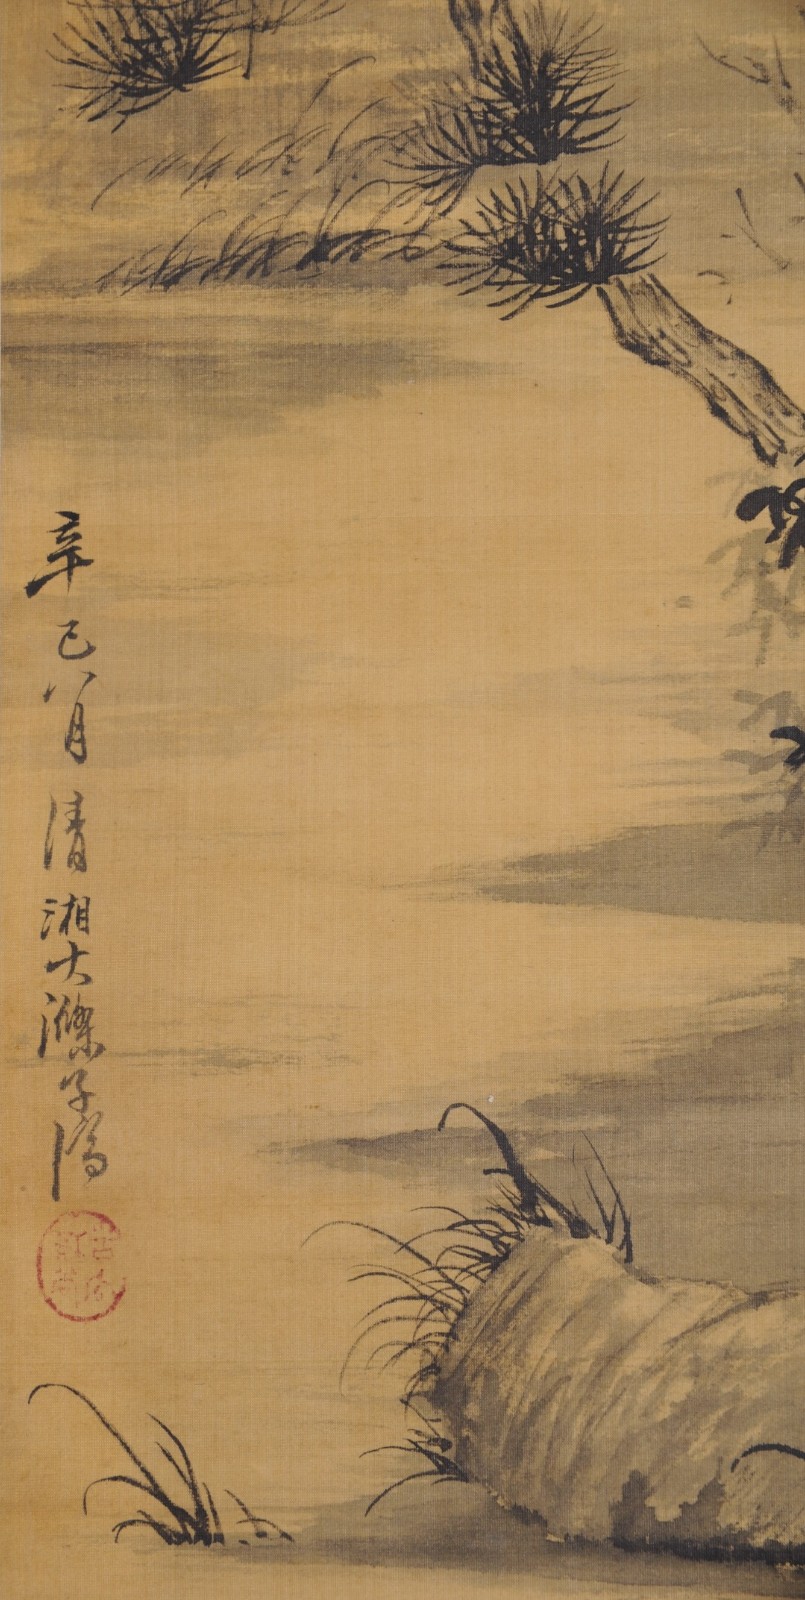 辛巳八月清湘大滌子濟